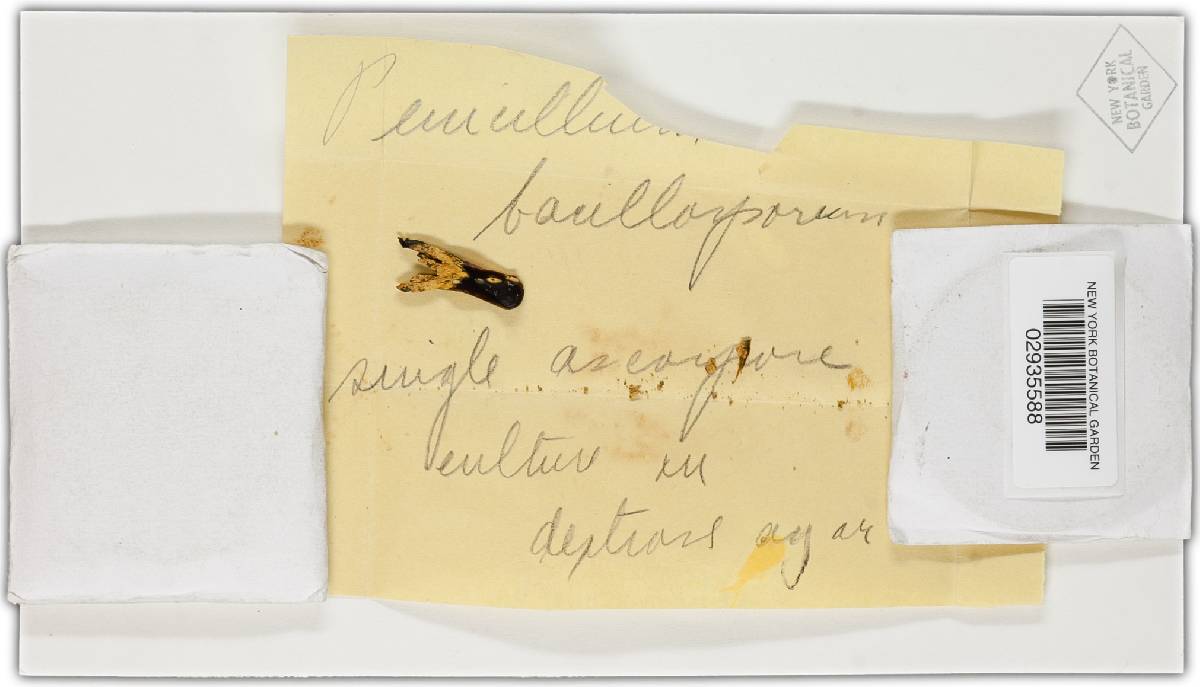 Penicillium
bacillosporum
single ascospore
culture in
dextrose agar
NEW YORK
BOTANICAL
GARDEN
NEW YORK BOTANICAL GARDEN
02935588